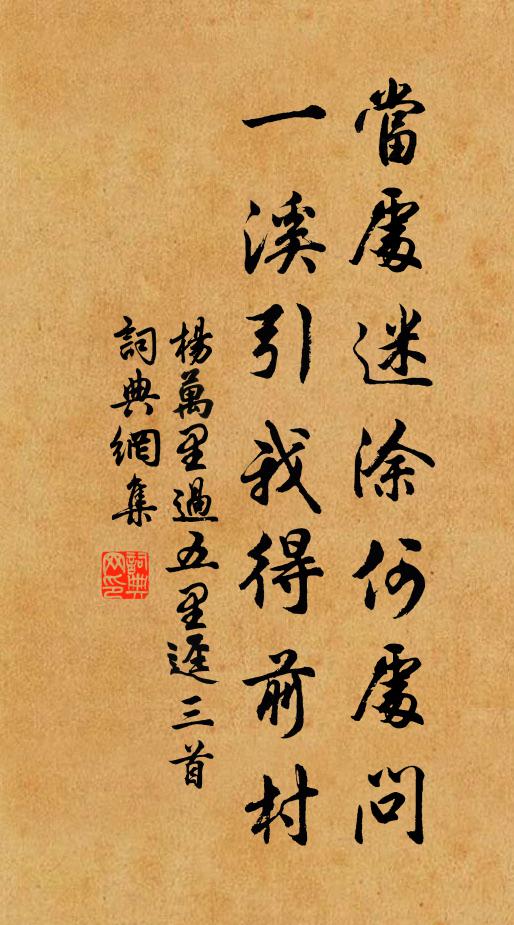 當處迷涂何處問
一溪引我得前村
楊萬里過五里逕三首
詞典網集
詞典網印